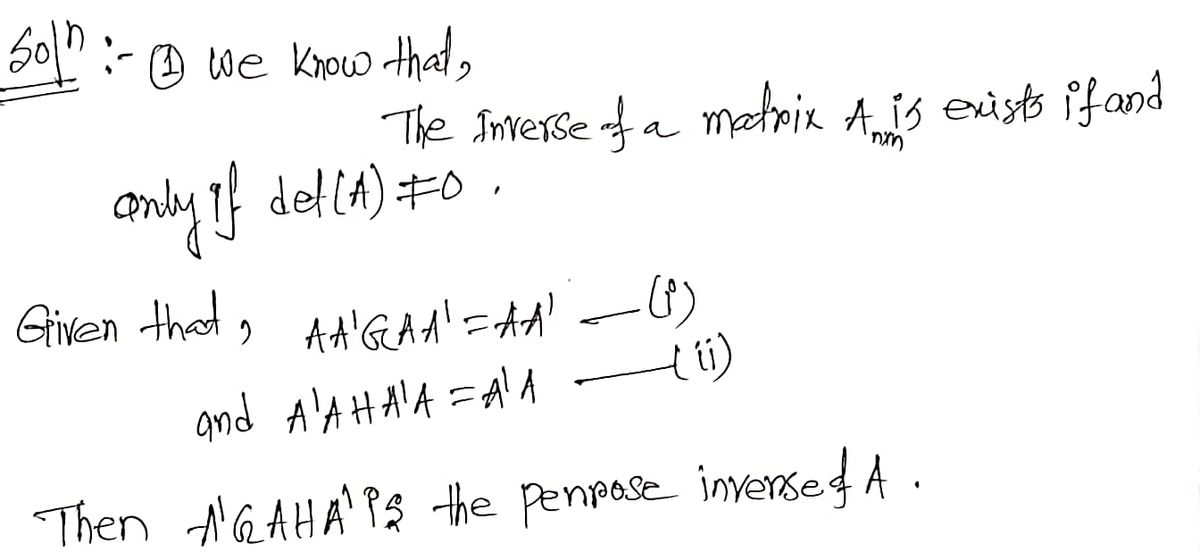 Solⁿ :- ① We know that,
The Inverse of a matrix Aₙₓₙ is exists if and
only if det(A) ≠ 0 .
Given that, AA'GAA' = AA' — (i)
and A'AHA'A = A'A — (ii)
Then A'GAHA' is the penrose inverse of A .